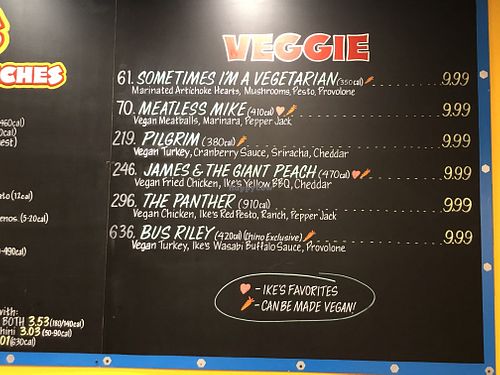 S
CHES
VEGGIE
61. SOMETIMES I'M A VEGETARIAN (350cal) 9.99
Marinated Artichoke Hearts, Mushrooms, Pesto, Provolone
70. MEATLESS MIKE (410cal) 9.99
Vegan Meatballs, Marinara, Pepper Jack
219. PILGRIM (380cal) 9.99
Vegan Turkey, Cranberry Sauce, Sriracha, Cheddar
246. JAMES & THE GIANT PEACH (470cal) 9.99
Vegan Fried Chicken, Ike's Yellow BBQ, Cheddar
296. THE PANTHER (910cal) 9.99
Vegan Chicken, Ike's Red Pesto, Ranch, Pepper Jack
636. BUS RILEY (420cal) (Chino Exclusive) 9.99
Vegan Turkey, Ike's Wasabi Buffalo Sauce, Provolone
- IKE'S FAVORITES
- CAN BE MADE VEGAN!
460cal)
0cal)
est)
enos. (5-20cal)
-490cal)
with:
BOTH 3.53 (180/140cal)
hini 3.03 (50-90cal)
.01 (630cal)